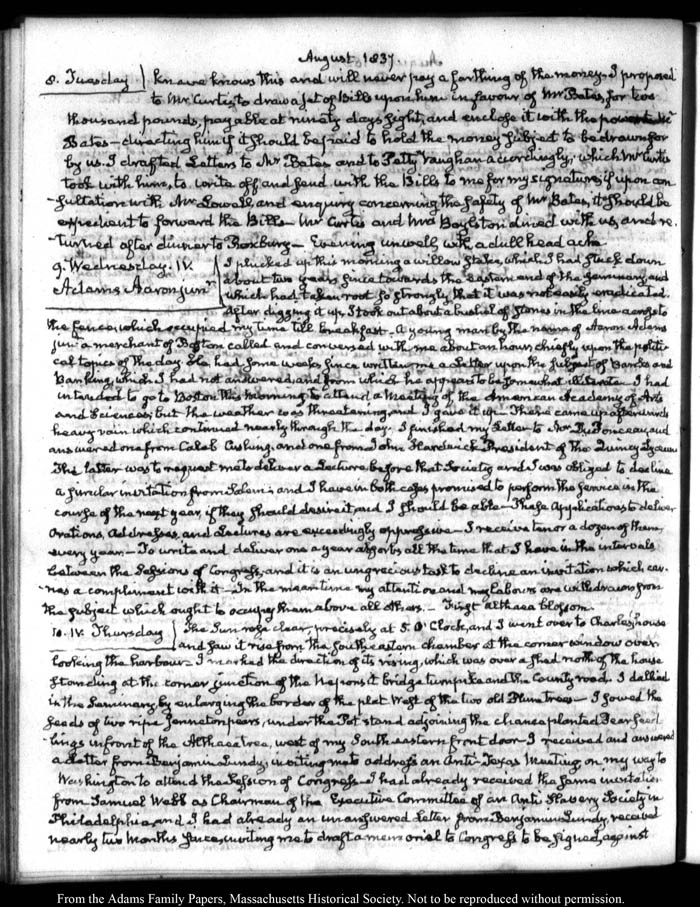 August 1837
8. Tuesday } knave knows this and will never pay a farthing of the money. I proposed
to Mr Curtis, to draw a set of Bills upon him in favour of Mr Bates, for two
thousand pounds, payable at ninety days sight, and enclose it with the power to Mr
Bates — directing him if it should be paid to hold the money subject to be drawn for
by us. I drafted Letters to Mr Bates and to Petty Vaughan accordingly; which Mr Curtis
took with him, to write off, and send with the Bills to me for my signature, if upon con
-sultation with Mr Lowell, and enquiry concerning the safety of Mr Bates, it should be
expedient to forward the Bills — Mr Curtis and Mrs Boylston dined with us, and re-
-turned after dinner to Roxbury — Evening unwell with a dull head ache
9. Wednesday. IV. I plucked up this morning a willow stake, which I had stuck down
Adams Aaron junr about two years since towards the eastern end of the Seminary, and
which had taken root so strongly that it was not easily eradicated.
After digging it up, I took out about a bushel of stones in the line across to
the fence, which occupied my time till breakfast. A young man by the name of Aaron Adams
junr a merchant of Boston called and conversed with me about an hour, chiefly upon the politi-
cal topics of the day. He had some weeks since written me a Letter upon the subject of Banks and
Banking, which I had not answered, and from which he appears to be somewhat illiterate. I had
intended to go to Boston this morning to attend a Meeting of the American Academy of Arts
and Sciences; but the weather was threatening and I gave it up. There came up afterwards
heavy rain which continued nearly through the day. I finished my Letter to Mr Du Ponceau, and
answered one from Caleb Cushing, and one from John Hardwick President of the Quincy Lyceum
The latter was to request me to deliver a Lecture, before that Society and I was obliged to decline
a similar invitation from Salem; and I have in both cases promised to perform the service in the
course of the next year, if they should desire it, and I should be able. These applications to deliver
Orations, Addresses, and Lectures are exceedingly oppressive — I receive ten or a dozen of them
every year — To write and deliver one a year absorbs all the time that I have in the intervals
between the Sessions of Congress, and it is an ungracious task to decline an invitation which car-
-ries a compliment with it — In the mean time my attention and my labours are withdrawn from
the subject which ought to occupy them above all others. — First althaea blossom.
10. IV. Thursday } The Sun rose clear, precisely at 5. O'Clock, and I went over to Charles's house
and saw it rise from the southeastern chamber at the corner window over
looking the harbour — I marked the direction of its rising, which was over a shed north of the house
standing at the corner junction of the Neponset bridge turnpike and the County road. I dallied
in the Seminary by enlarging the border of the plat West of the two old Plum trees — I sowed the
seeds of two ripe Jenneton pears, under the Pot stand adjoining the chance planted Pear seed
-lings in front of the Althaea tree, west of my South eastern front door — I received and answered
a Letter from Benjamin Lundy, inviting me to address an Anti-Texas Meeting on my way to
Washington to attend the Session of Congress — I had already received the same invitation
from Samuel Webb as Chairman of the Executive Committee of an Anti Slavery Society in
Philadelphia, and I had already an unanswered Letter from Benjamin Lundy, received
nearly two months since, inviting me to draft a memorial to Congress to be signed, against
From the Adams Family Papers, Massachusetts Historical Society. Not to be reproduced without permission.